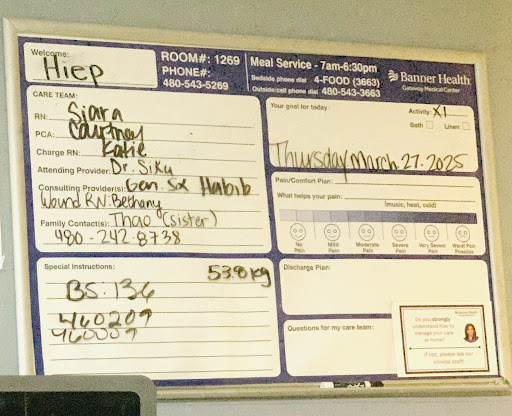 Welcome: Hiep
ROOM#: 1269
PHONE#:
480-543-5269
Meal Service - 7am-6:30pm
Bedside phone dial 4-FOOD (3663)
Outside/cell phone dial 480-543-3663
Banner Health
Gateway Medical Center
CARE TEAM:
RN: Siara
PCA: Courtney
Charge RN: Katie
Attending Provider: Dr. Siku
Consulting Provider(s): Gen. Sx Habib
Wound RN: Bethany
Family Contact(s): Thao (sister)
480-242-8738
Your goal for today:
Activity: X1
Bath Linen
Thursday March 27. 2025
Pain/Comfort Plan:
What helps your pain:
(music, heat, cold)
No Pain
Mild Pain
Moderate Pain
Severe Pain
Very Severe Pain
Worst Pain Possible
Special Instructions: 53.8 kg
BS: 136
460209
460009
Discharge Plan:
Questions for my care team:
Banner Health
Do you strongly
understand how to
manage your care
at home?
If not, please ask our
clinical staff!